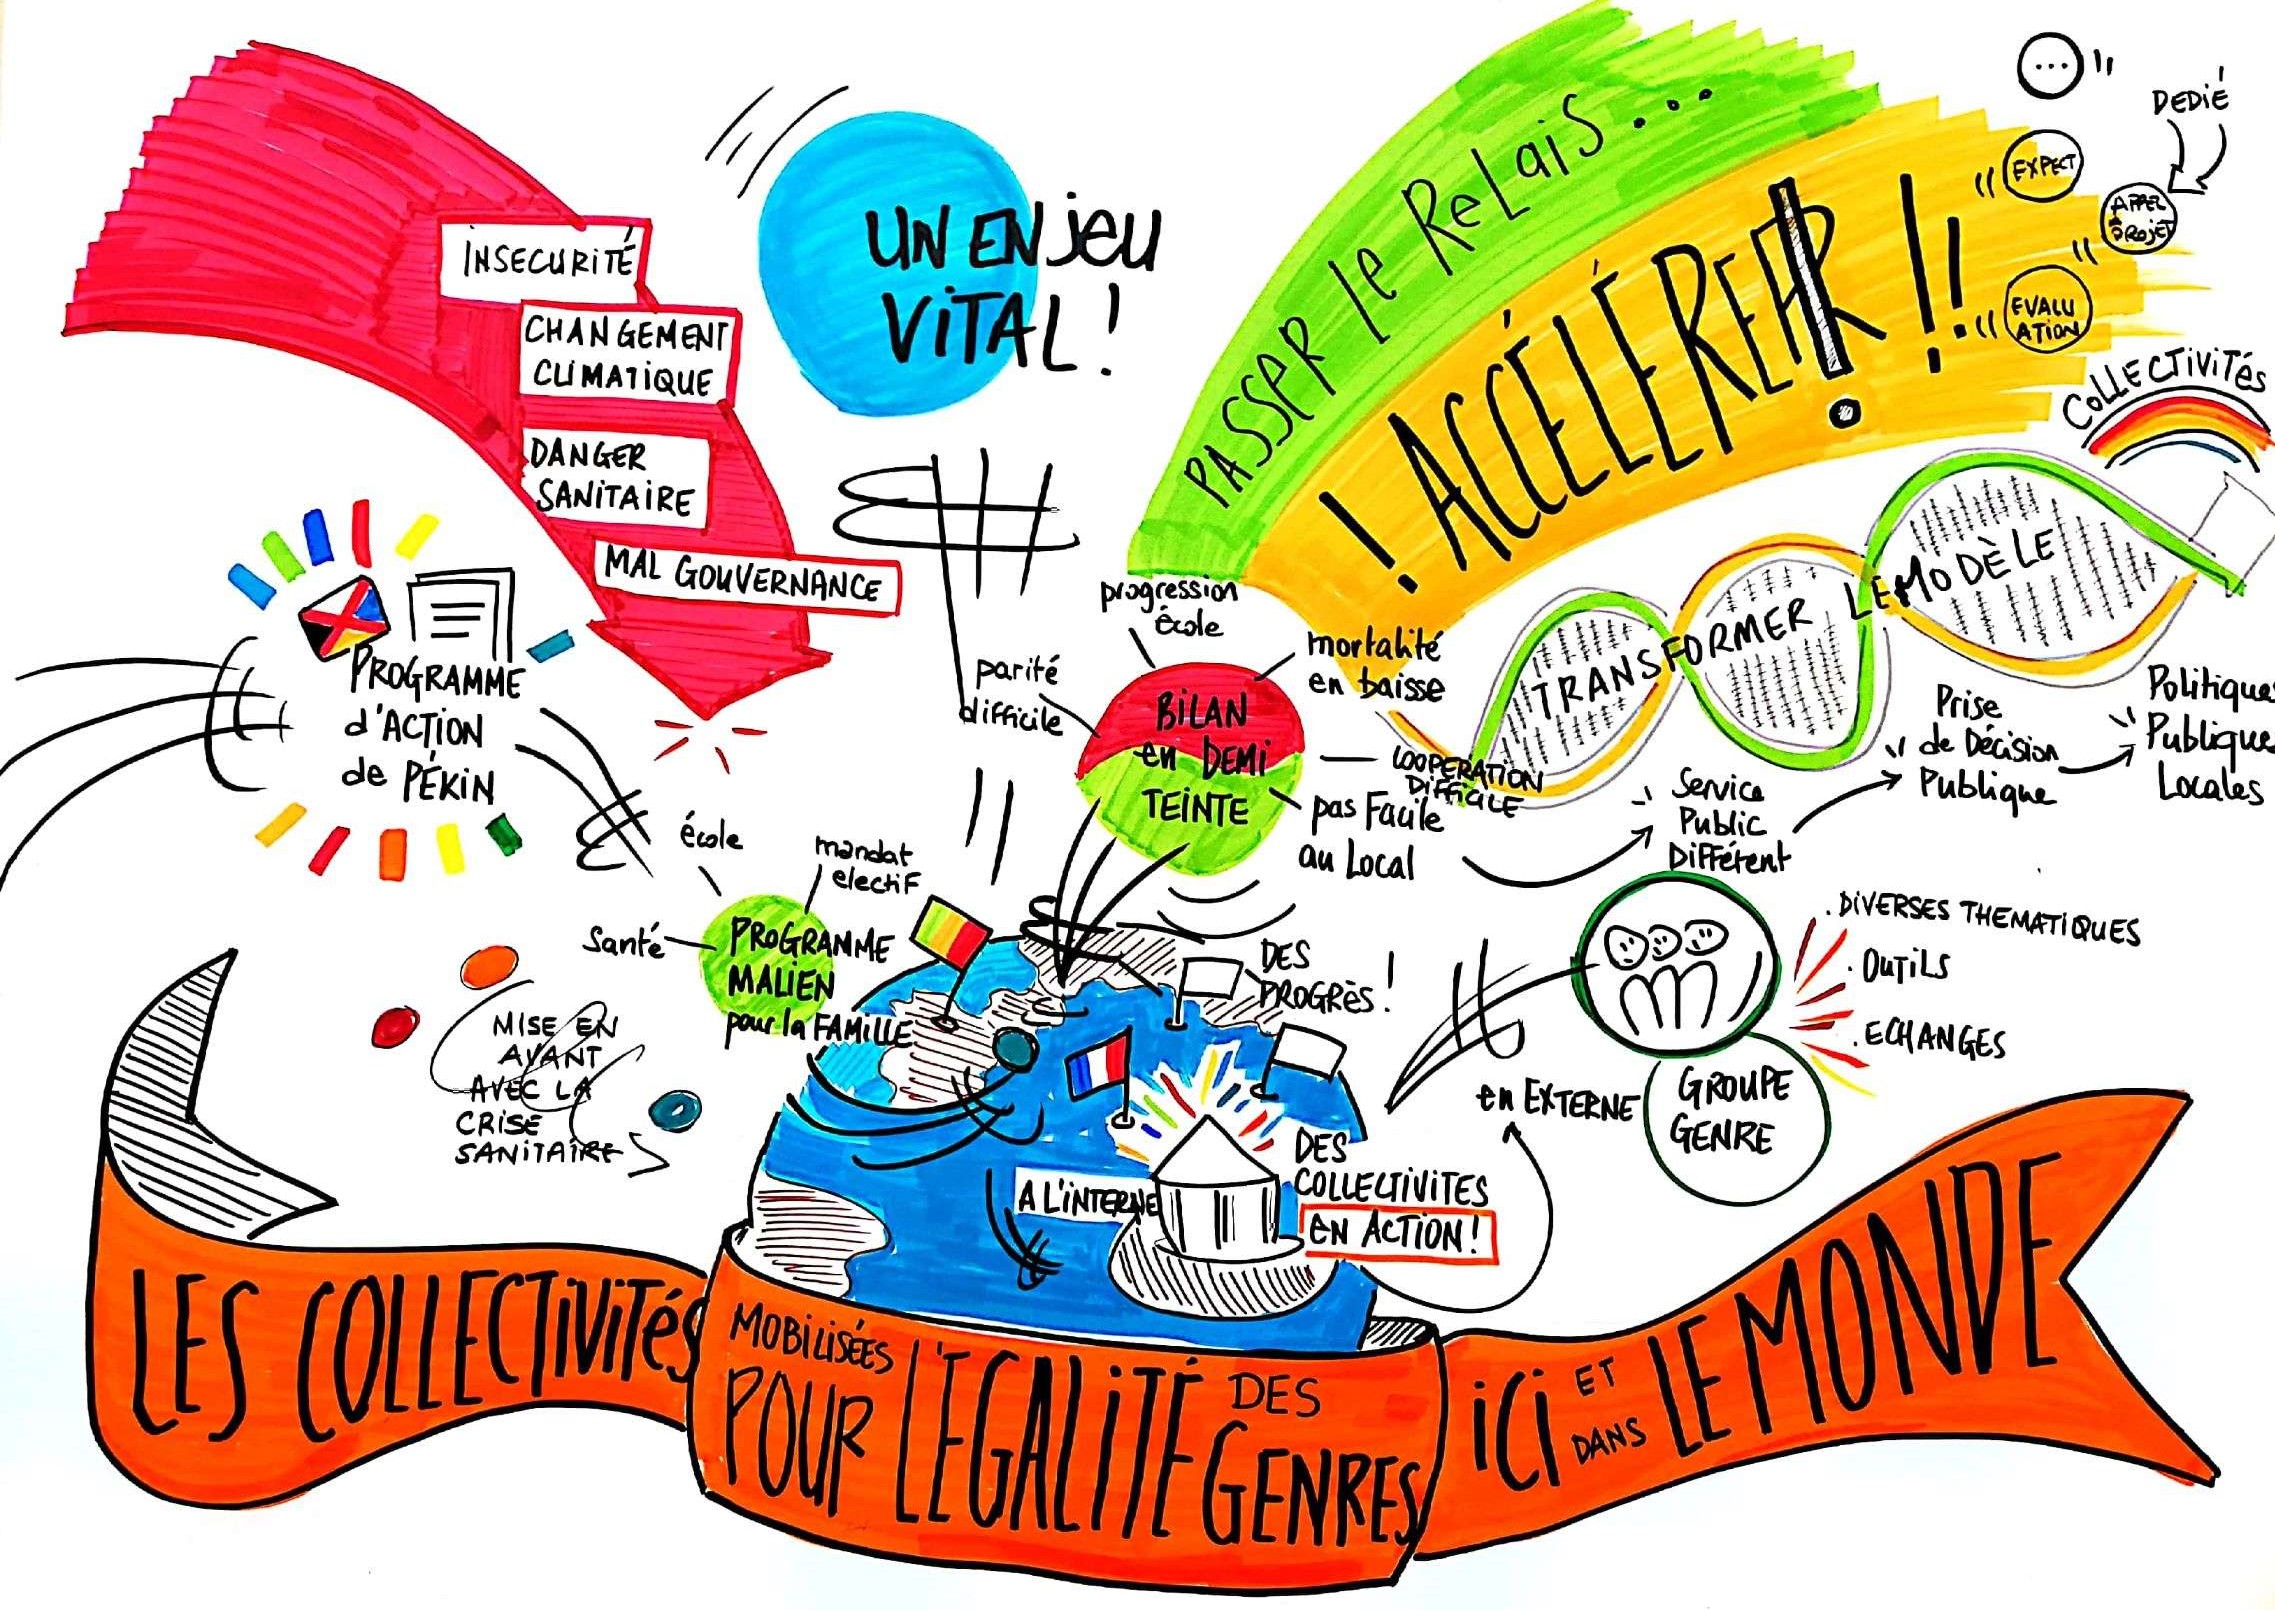 INSECURITÉ
CHANGEMENT
CLIMATIQUE
DANGER
SANITAIRE
MAL GOUVERNANCE
UN ENJEU
VITAL !
PASSER le ReLaiS...
! ACCÉLÉRER !!
...
DEDIÉ
EXPECT
APPEL
à PROJET
EVALU
ATION
COLLECTIVITÉS
TRANSFORMER LE MODÈLE
PROGRAMME
d'ACTION
de PÉKIN
progression
école
parité
difficile
mortalité
en baisse
BILAN
en DEMI
TEINTE
COOPERATION
DIFFICILE
pas Facile
au Local
Service
Public
Différent
Prise
de Décision
Publique
Politiques
Publiques
Locales
école
mandat
electif
Santé
PROGRAMME
MALIEN
pour la FAMILLE
MISE EN
AVANT
AVEC LA
CRISE
SANITAIRE
DES
PROGRÈS !
. DIVERSES THEMATIQUES
. OUTILS
. ECHANGES
GROUPE
GENRE
en EXTERNE
A L'INTERNE
DES
COLLECTIVITES
EN ACTION !
LES COLLECTIVITÉS
MOBILISÉES
POUR L'ÉGALITÉ DES
GENRES
ICI ET
DANS LE MONDE